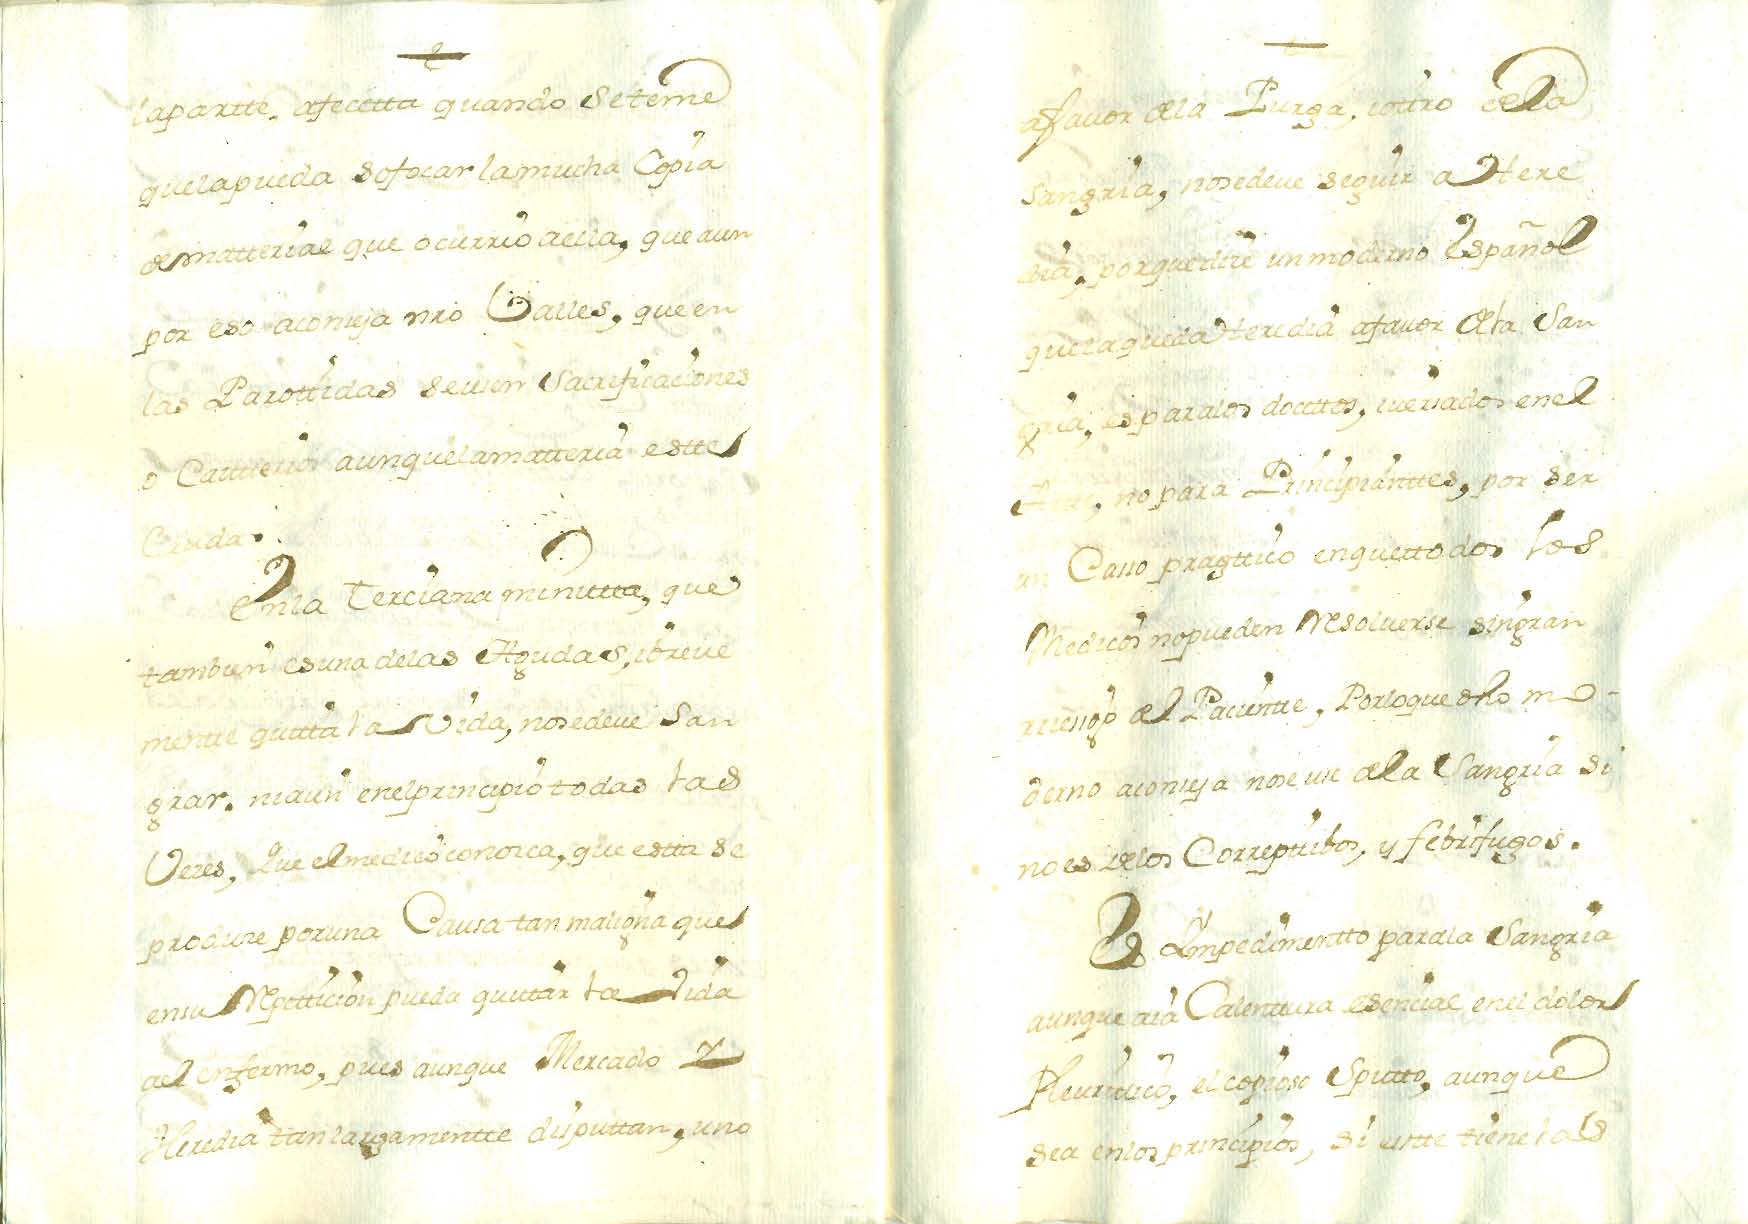 la partte, afecttta quando seteme
quelapueda sofocar lamucha Copia
de matterial que ocurrio aella, que aun
por eso aconseja nro Valles, que en
las Parottidas seusen Sacrificaciones
o Cautterios aunquelamatteria estte
Cruda.
Enla Terciana minutta, que
tambien esuna delas Agudas, ibreve
mentte quitta la Vida, nosedeve San
grar. niaun enelprincipio todas las
Vezes, Que elmedico conosca, que estta se
produze poruna Causa tan maligna que
ensu Repetticion pueda quittar la Vida
ael enfermo, pues aunque Mercado y
Heredia tanlargamentte disputtan, uno
afavor dela Purga, iottro dela
Sangria, nosedeve seguir a Here
dia, porquedize unmoderno Español
quelaqueda Heredia afavor dela San
gria, es paralos docttos, iversados enel
Arte, no para Principianttes, por ser
un Casso pragttico enquettodos los
Medicos nopueden Resolverse singran
riessgo del Pacientte, Porloque dho mo-
derno aconseja nose use dela Sangria si
noes delos Correpttibos, y febrifugos.
Es Ympedimentto parala Sangria
aunque aia Calenttura esencial enel dolor
Pleurittico, el copioso Sputto, aunque
sea enlos principios, si estte tiene las